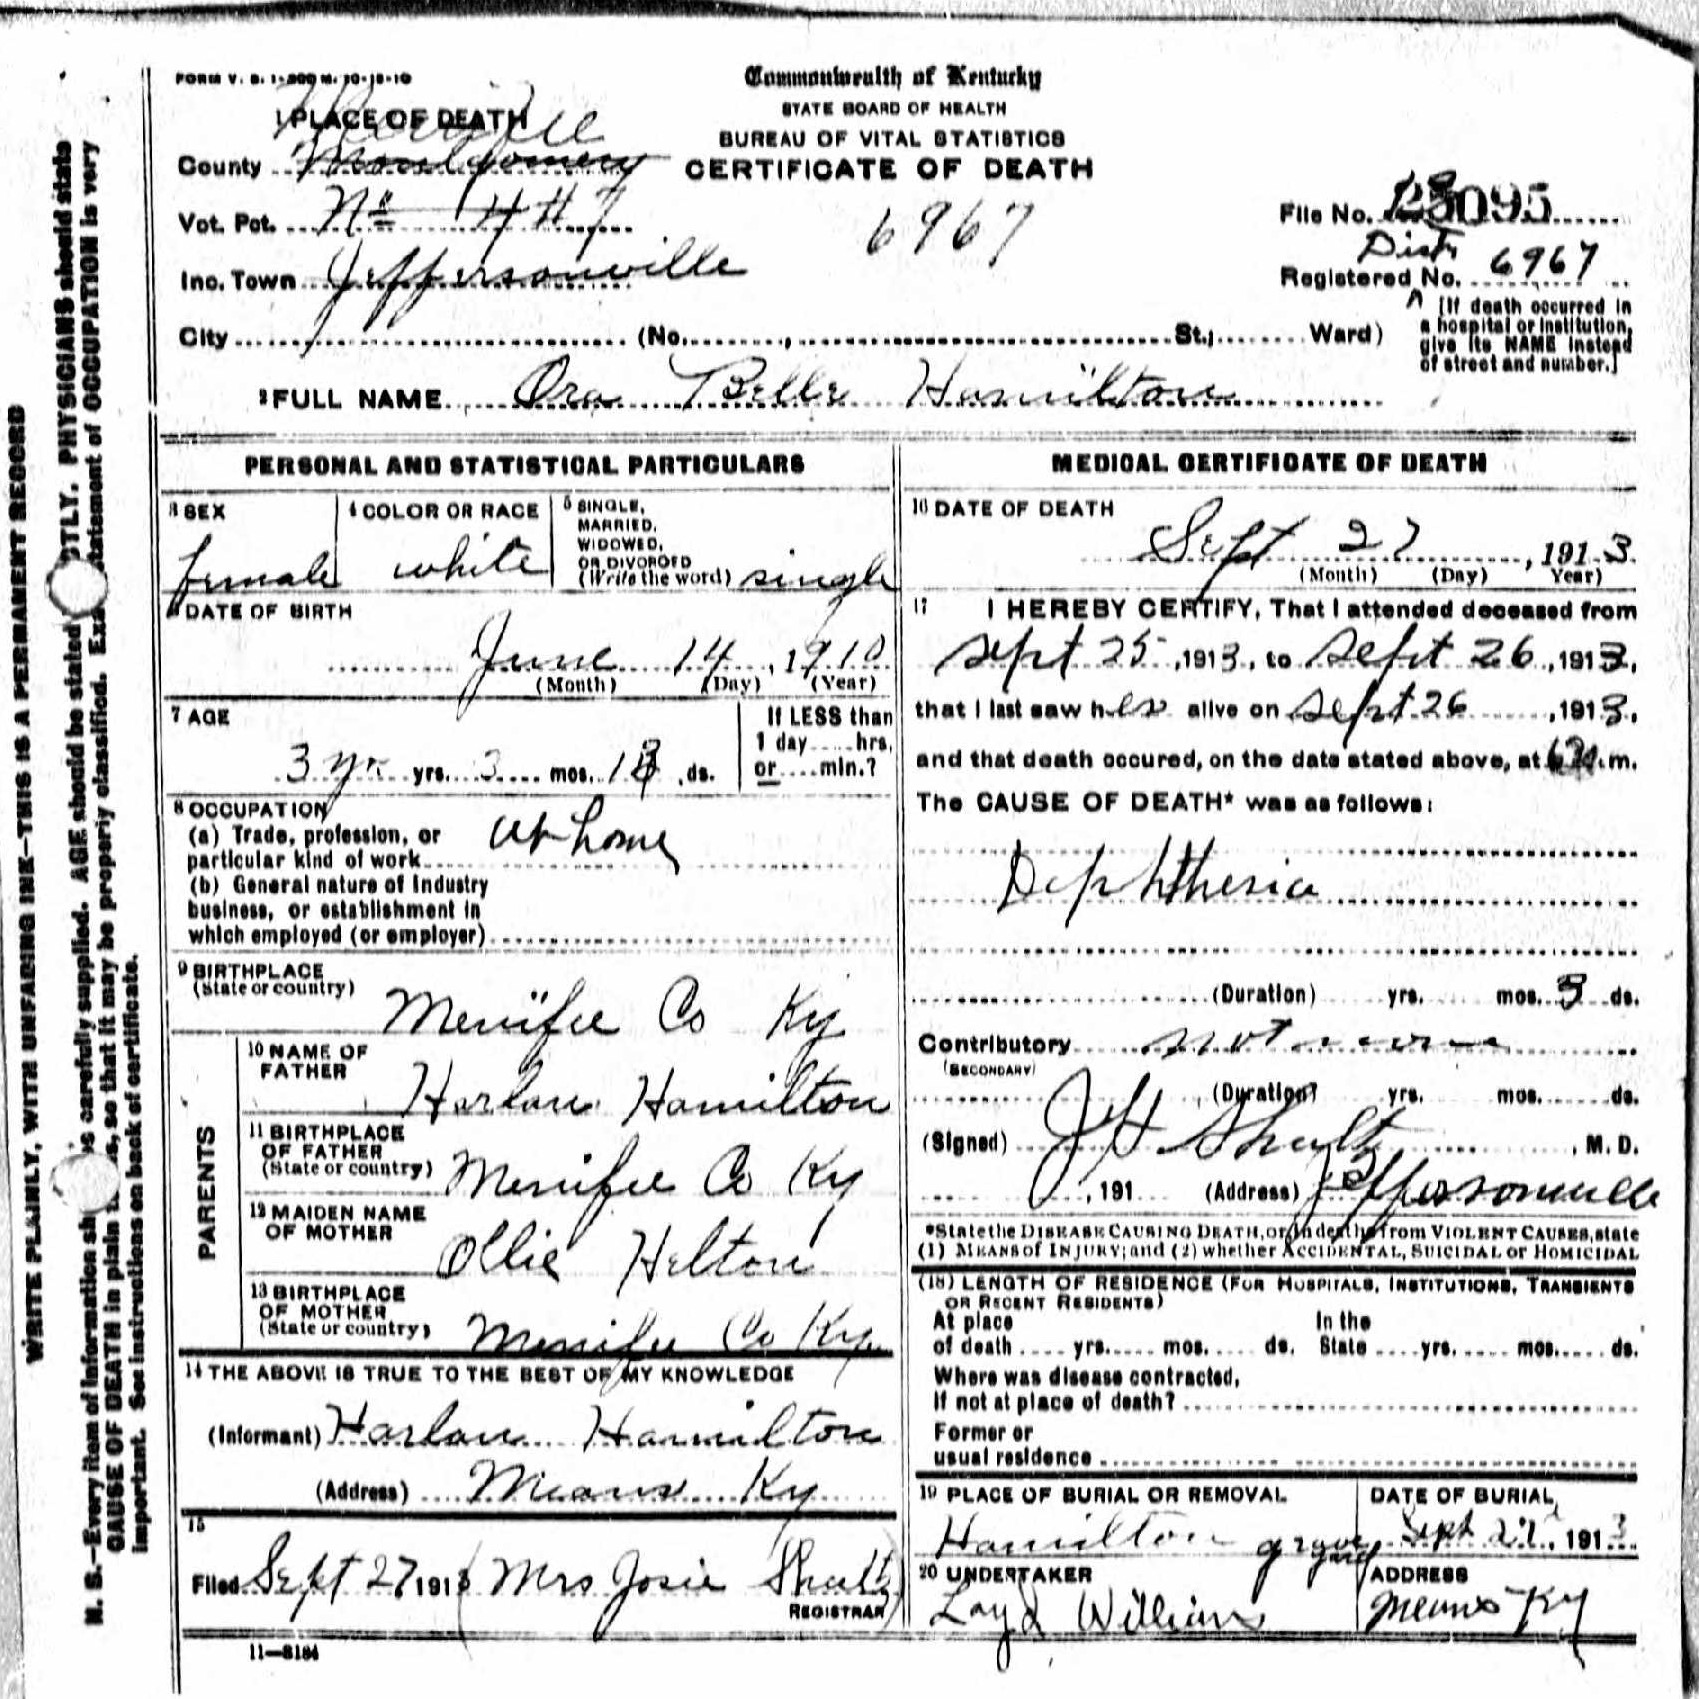 FORM V. S. 1-200 M. 10-18-10
Commonwealth of Kentucky
STATE BOARD OF HEALTH
BUREAU OF VITAL STATISTICS
CERTIFICATE OF DEATH
1 PLACE OF DEATH
Menifee
County Montgomery
Vot. Pct. No 4
Inc. Town Jeffersonville
6967
File No. 23095
Dist
Registered No. 6967
City (No. , St.; Ward)
[If death occurred in
a hospital or institution,
give its NAME instead
of street and number.]
2 FULL NAME Ora Belle Hamilton
PERSONAL AND STATISTICAL PARTICULARS
3 SEX
female
4 COLOR OR RACE
white
5 SINGLE,
MARRIED,
WIDOWED,
OR DIVORCED
(Write the word) single
6 DATE OF BIRTH
June 14, 1910
(Month) (Day) (Year)
7 AGE
3 yr yrs. 3 mos. 13 ds.
If LESS than
1 day hrs.
or min.?
8 OCCUPATION
(a) Trade, profession, or
particular kind of work at home
(b) General nature of Industry
business, or establishment in
which employed (or employer)
9 BIRTHPLACE
(State or country)
Menifee Co Ky
PARENTS
10 NAME OF
FATHER
Harlan Hamilton
11 BIRTHPLACE
OF FATHER
(State or country) Menifee Co Ky
12 MAIDEN NAME
OF MOTHER
Ollie Helton
13 BIRTHPLACE
OF MOTHER
(State or country) Menifee Co Ky
14 THE ABOVE IS TRUE TO THE BEST OF MY KNOWLEDGE
(Informant) Harlan Hamilton
(Address) Means Ky
15
Filed Sept 27 1913 Mrs Josie Shultz
REGISTRAR
11-8184
MEDICAL CERTIFICATE OF DEATH
16 DATE OF DEATH
Sept 27, 1913
(Month) (Day) Year)
17 I HEREBY CERTIFY, That I attended deceased from
Sept 25, 1913, to Sept 26, 1913,
that I last saw her alive on Sept 26, 1913,
and that death occured, on the date stated above, at m.
The CAUSE OF DEATH* was as follows:
Diphtheria
(Duration) yrs. mos. 3 ds.
Contributory
(SECONDARY)
(Duration) yrs. mos. ds.
(Signed) J H Shultz, M. D.
, 191 (Address) Jeffersonville
*State the DISEASE CAUSING DEATH, or, in deaths from VIOLENT CAUSES, state
(1) MEANS of INJURY; and (2) whether ACCIDENTAL, SUICIDAL or HOMICIDAL
(18) LENGTH OF RESIDENCE (FOR HOSPITALS, INSTITUTIONS, TRANSIENTS
OR RECENT RESIDENTS)
At place In the
of death yrs. mos. ds. State yrs. mos. ds.
Where was disease contracted,
If not at place of death?
Former or
usual residence
19 PLACE OF BURIAL OR REMOVAL
Hamilton grave yard
DATE OF BURIAL
Sept 27, 1913
20 UNDERTAKER
Loyd Williams
ADDRESS
Means Ky
WRITE PLAINLY, WITH UNFADING INK—THIS IS A PERMANENT RECORD
N. B.—Every item of information carefully supplied. AGE should be stated PHYSICIANS should state
CAUSE OF DEATH in plain so that it may be properly classified. statement of OCCUPATION is very
important. See instructions on back of certificate.